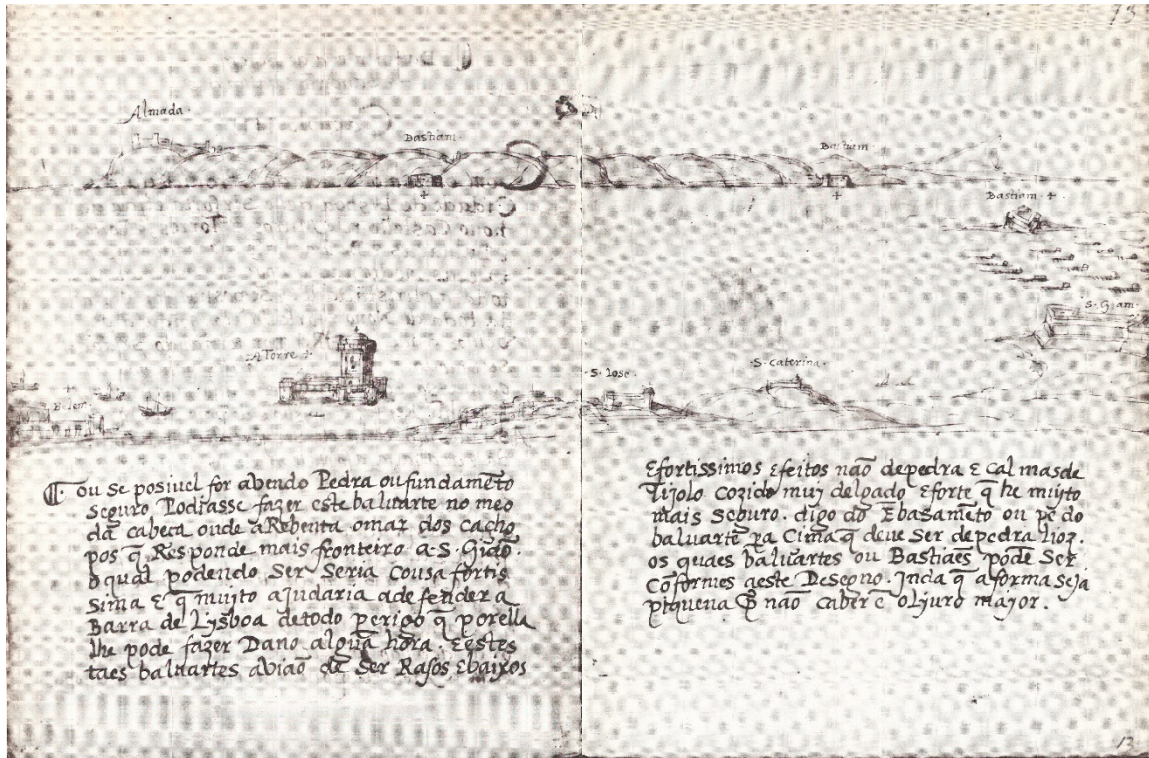 13
Almada.
Bastiam.
Bastiam
Bastiam. +.
+
+
S. Giam.
A Torre +
S. Iose.
S. Caterina.
Belem
¶. ou se posiuel for abendo Pedra ou fundamẽto
seguro Podrasse fazer este baluarte no meo
da cabeca onde a Rebenta o mar dos cacho
pos q̃ Responde mais fronteiro a. S. Giaõ.
o qual podendo Ser Seria cousa fortis
sima E q̃ muito ajudaria a defender a
Barra de Lysboa de todo perigo q̃ por ella
lhe pode fazer Dano algũa hora. E estes
taes baluartes aviaõ de Ser Rasos E baixos
E fortissimos E feitos naõ de pedra E cal mas de
Tijolo cozido muj delgado E forte q̃ he muyto
mais Seguro. digo do Ebasamẽto ou pẽ do
baluarte pa Cima q̃ deve Ser de pedra lioz.
os quaes baluartes ou Bastiaẽs podẽ Ser
Cõformes a este Desegno. Inda q̃ a forma seja
piquena naõ caber ẽ o liuro mayor.
13